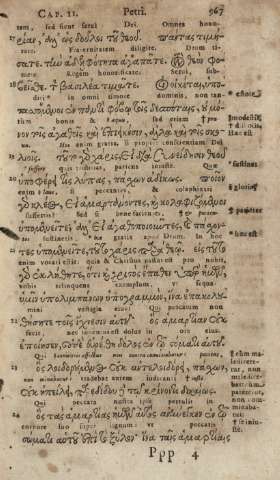 CAP. II. Petri. 567
tem, sed sicut servi Dei. Omnes hono-
ρίαν, ἀλλ' ὡς δοῦλοι τοῦ θεοῦ. πάντας τιμή-
rate. Fraternitatem diligite. Deum ti-
σατε. τὴν ἀδελφότητα ἀγαπᾶτε. τὸν θεὸν φο-
mete. Regem honorificate. Servi, sub-
βεῖσθε. τὸν βασιλέα τιμᾶτε. Οἱ οἰκέται, ὑπο-
diti in omni timore dominis, non tan-
τασσόμενοι ἐν παντὶ φόβῳ τοῖς δεσπόταις, οὐ μό-
tum bonis & sed etiam
νον τοῖς ἀγαθοῖς καὶ ἐπιεικέσιν, ἀλλὰ καὶ τοῖς σκο-
enim gratia, si propter conscientiam Dei
λιοῖς. τοῦτο γὰρ χάρις, εἰ διὰ συνείδησιν θεοῦ
quis tristitias, patiens injuste. Quæ
ὑποφέρει τις λύπας, πάσχων ἀδίκως. ποῖον
enim si peccantes, & colaphizati
γὰρ κλέος, εἰ ἁμαρτάνοντες καὶ κολαφιζόμενοι
suffertis? Sed si bene facientes, patientes
ὑπομενεῖτε; ἀλλ' εἰ ἀγαθοποιοῦντες καὶ πάσχον-
sustinetis gratia apud Deum. In hoc
τες ὑπομενεῖτε, τοῦτο χάρις παρὰ θεῷ. εἰς τοῦτο
enim vocati estis, quia & Christus passus est pro nobis
γὰρ ἐκλήθητε, ὅτι καὶ χριστὸς ἔπαθεν ὑπὲρ ἡμῶν,
vobis relinquens exemplum, ut sequa-
ὑμῖν ὑπολιμπάνων ὑπογραμμόν, ἵνα ἐπακολου-
mini vestigia ejus: Qui peccatum non
θήσητε τοῖς ἴχνεσιν αὐτοῦ. ὃς ἁμαρτίαν οὐκ
fecit, nec inventus est dolus in ore ejus.
ἐποίησεν, οὐδὲ εὑρέθη δόλος ἐν τῷ στόματι αὐτοῦ.
ὃς λοιδορούμενος οὐκ ἀντελοιδόρει, πάσχων
non minabatur: tradebat autem judicanti
οὐκ ἠπείλει, παρεδίδου δὲ τῷ κρίνοντι δικαίως.
Qui peccata nostra ipse pertulit in
ὃς τὰς ἁμαρτίας ἡμῶν αὐτὸς ἀνήνεγκεν ἐν τῷ
corpore suo super lignum: ut peccatis
σώματι αὐτοῦ ἐπὶ τὸ ξύλον, ἵνα ταῖς ἁμαρτίαις
Ppp 4